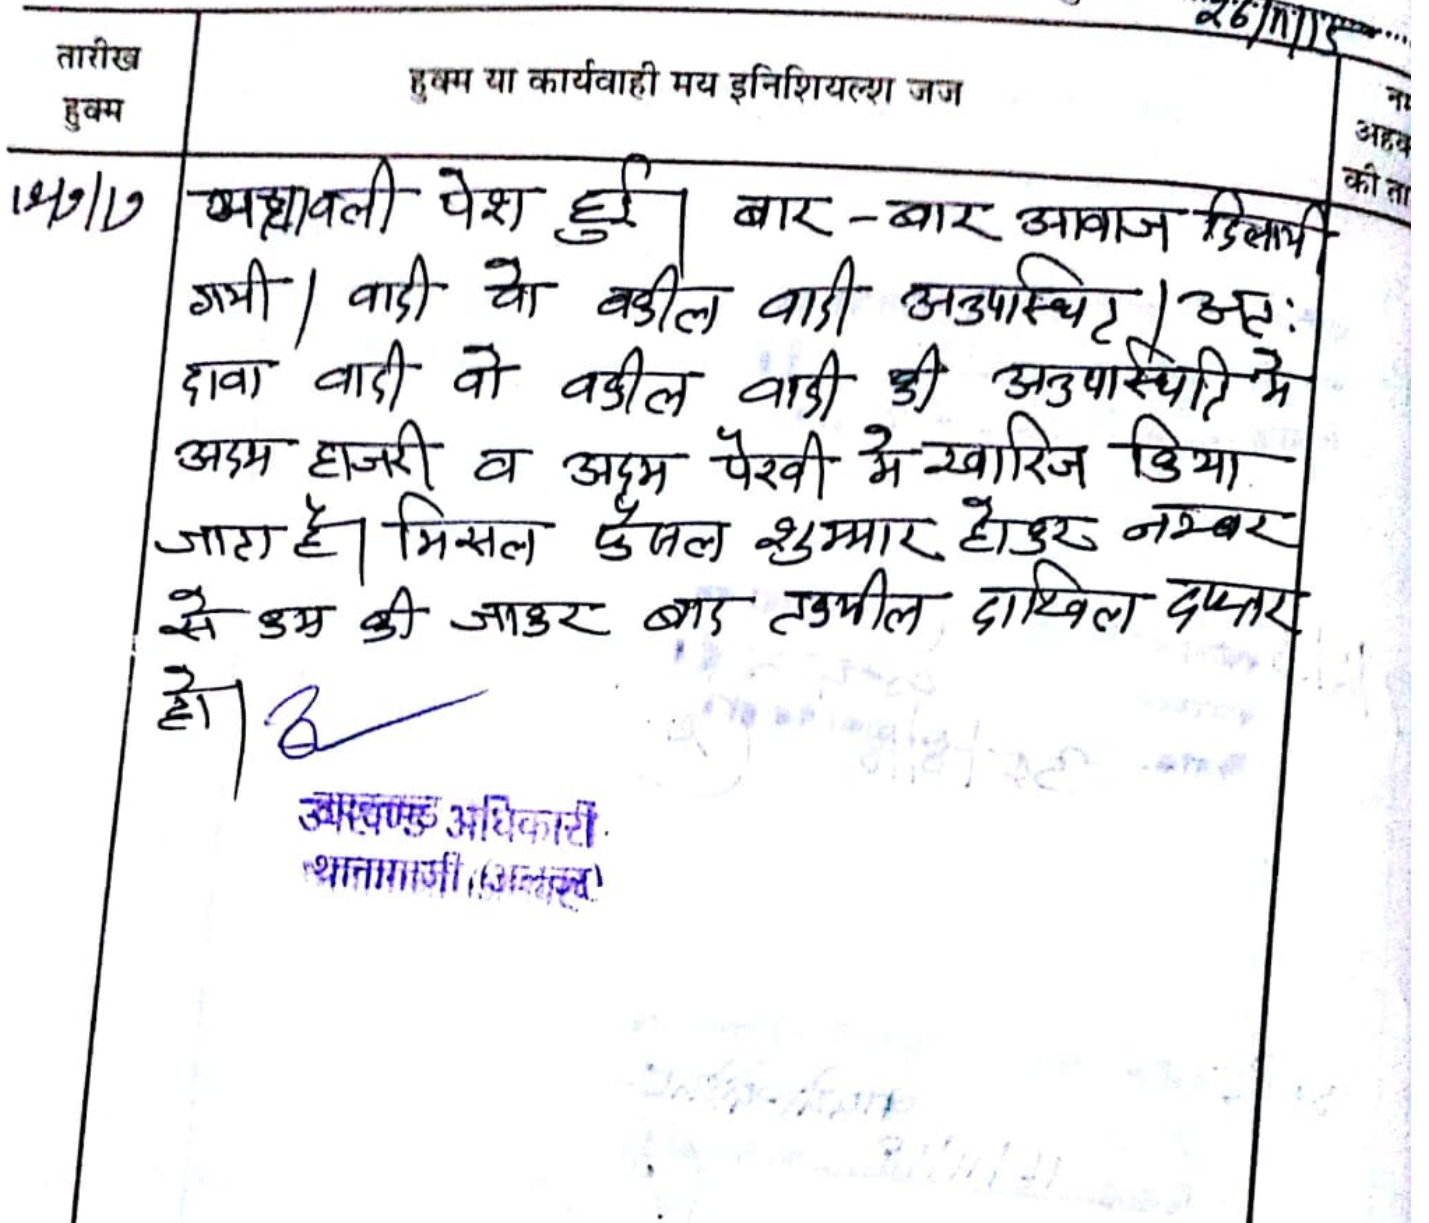 26/11/15
तारीख
हुक्म
हुक्म या कार्यवाही मय इनिशियल्श जज
अहक
की ता
पत्रावली पेश हुई। बार-बार आवाज दिलायी
गयी। वादी वो वकील वादी अनुपस्थित। अतः
दावा वादी वो वकील वादी की अनुपस्थिति मे
अदम हाजरी व अदम पैरवी मे खारिज किया
जाता है। मिसल फैसल शुम्मार होकर नम्बर
से कम की जाकर बाद तकमील दाखिल दफ्तर
हो।
उपखण्ड अधिकारी
थानागाजी (अलवर)